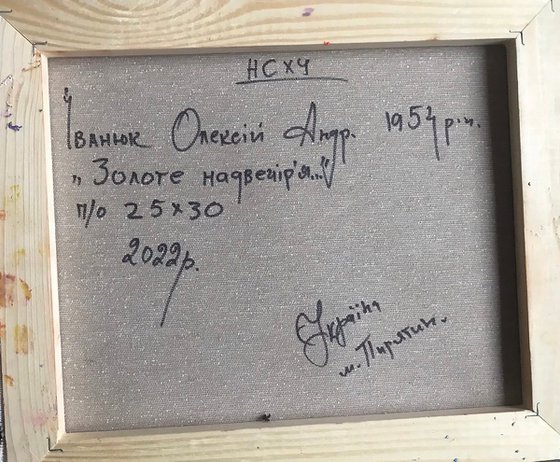 НСХУ
Іванюк Олексій Андр. 1954 р.н.
„Золоте надвечір'я..."
п/о 25×30
2022р.
Україна
м. Пирятин.